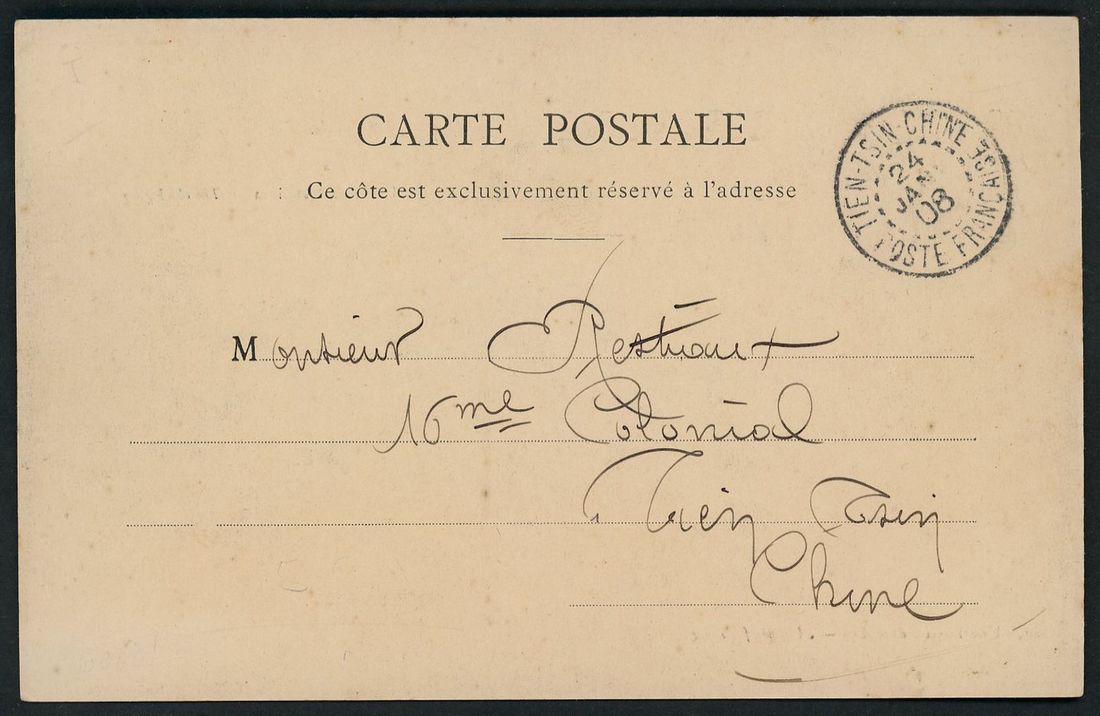 CARTE POSTALE
Ce côte est exclusivement réservé à l'adresse
TIEN-TSIN-CHINE POSTE FRANÇAISE
24
JAN
08
Monsieur Restiaux
16me Colonial
Tien Tsin
Chine